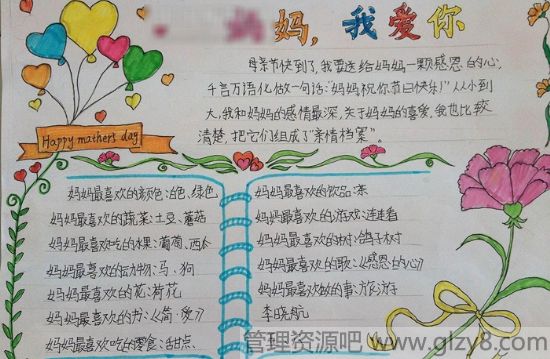 妈，我爱你
母亲节快到了，我要送给妈妈一颗感恩的心，
千言万语化做一句话：“妈妈祝你节日快乐！”从小到
大，我和妈妈的感情最深，关于妈妈的喜爱，我也比较
清楚，把它们组成了“亲情档案”。
Happy mathers day
妈妈最喜欢的颜色：白色，绿色，
妈妈最喜欢的蔬菜：土豆、蘑菇
妈妈最喜欢吃的水果：葡萄、西瓜
妈妈最喜欢的动物：马、狗
妈妈最喜欢的花：荷花
妈妈最喜欢的书：《简·爱》
妈妈最喜欢吃的零食：甜点、
妈妈最喜欢的饮品：茶
妈妈最喜欢的游戏：连连看
妈妈最喜欢的树：鸽子树
妈妈最喜欢的歌：《感恩的心》
妈妈最喜欢做的事：旅游
李晓航
管理资源吧 www.glzy8.com